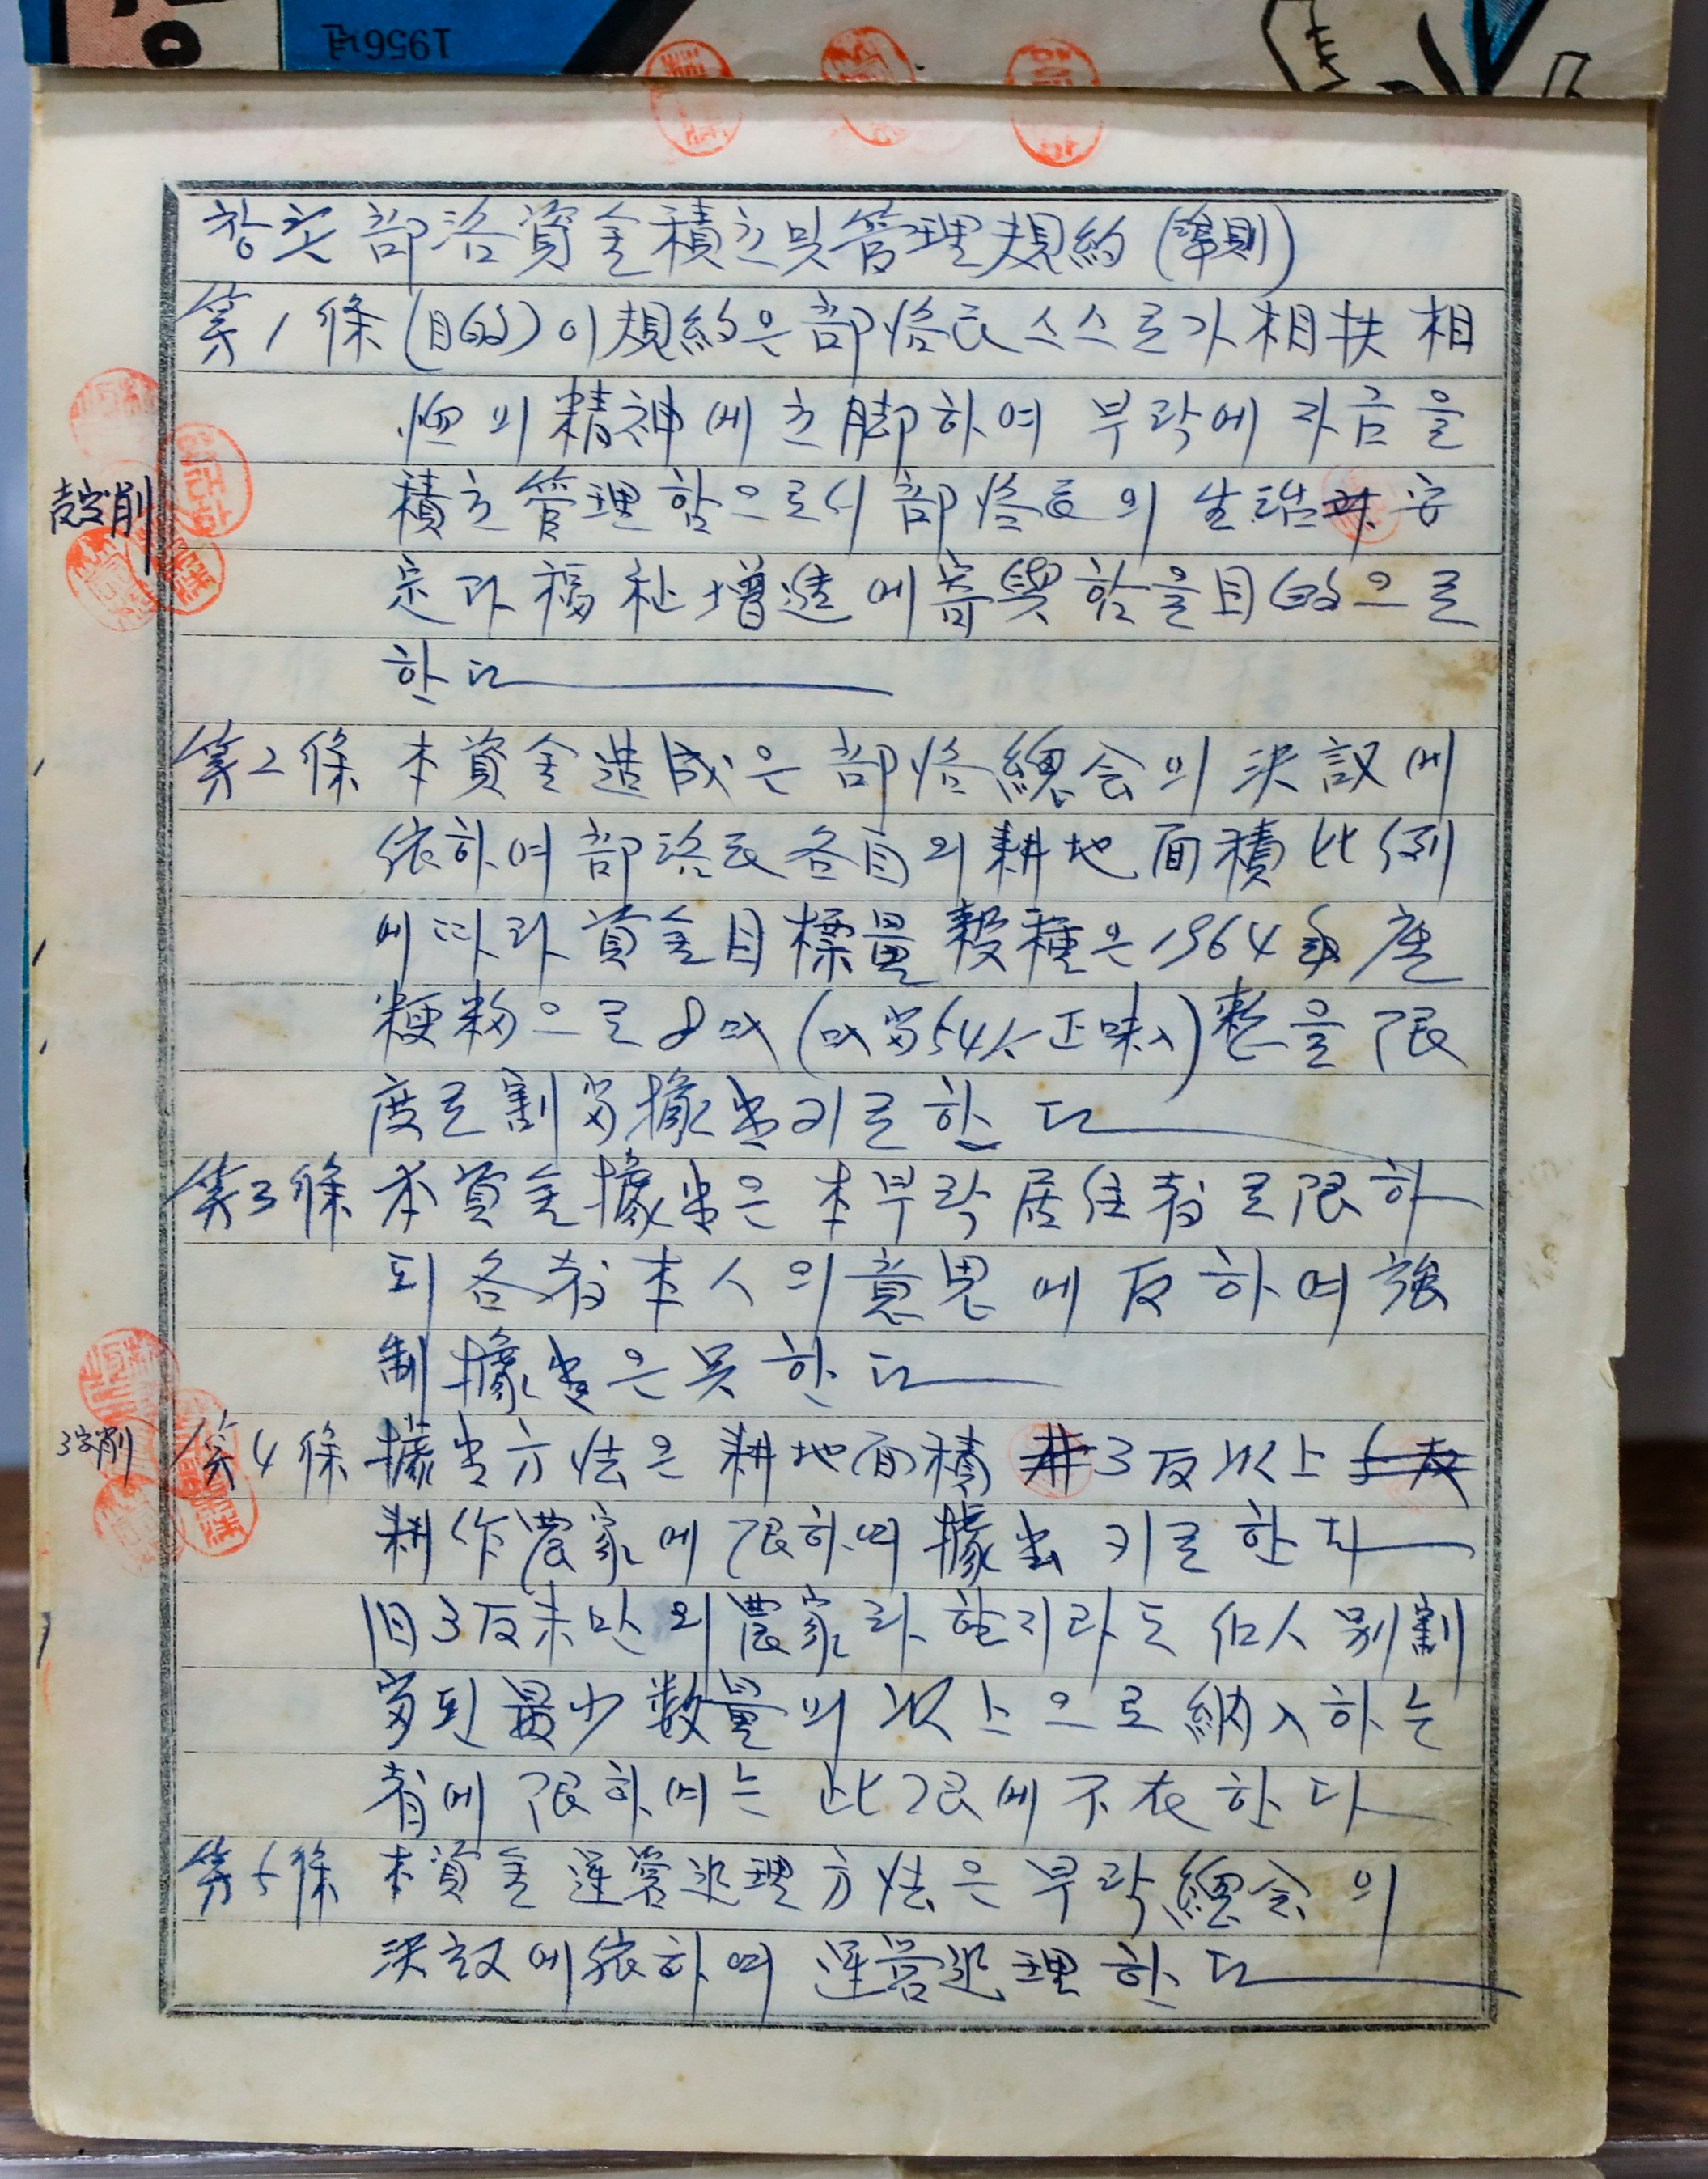 1956년
部洛資金積立및管理規約(準則)
第1條(目的)이規約은部洛民스스로가相扶相
의精神에立脚하여부락에자금을
積立管理함으로서部洛民의生活安
壱字削
定과福祉增進에寄與함을目的으로
한다
第2條 本資金造成은部洛總会의決議에
依하여部洛民各自의耕地面積比例
에따라資金目標量穀種은1964年産
粳籾으로8叺(叺当54k正味入)整을限
度로割当據出키로한다
第3條 本資金據出은本부락居住者로限하
되各者本人의意思에反하여强
制據出은못한다
3字削
第4條 據出方法은耕地面積3反以上
耕作農家에限하여據出키로한다
但3反未만의農家라할지라도個人別割
当된最少数量의以上으로納入하는
者에限하여는此限에不在한다
第5條 本資金運営処理方法은부락總会의
決議에依하여運営処理한다